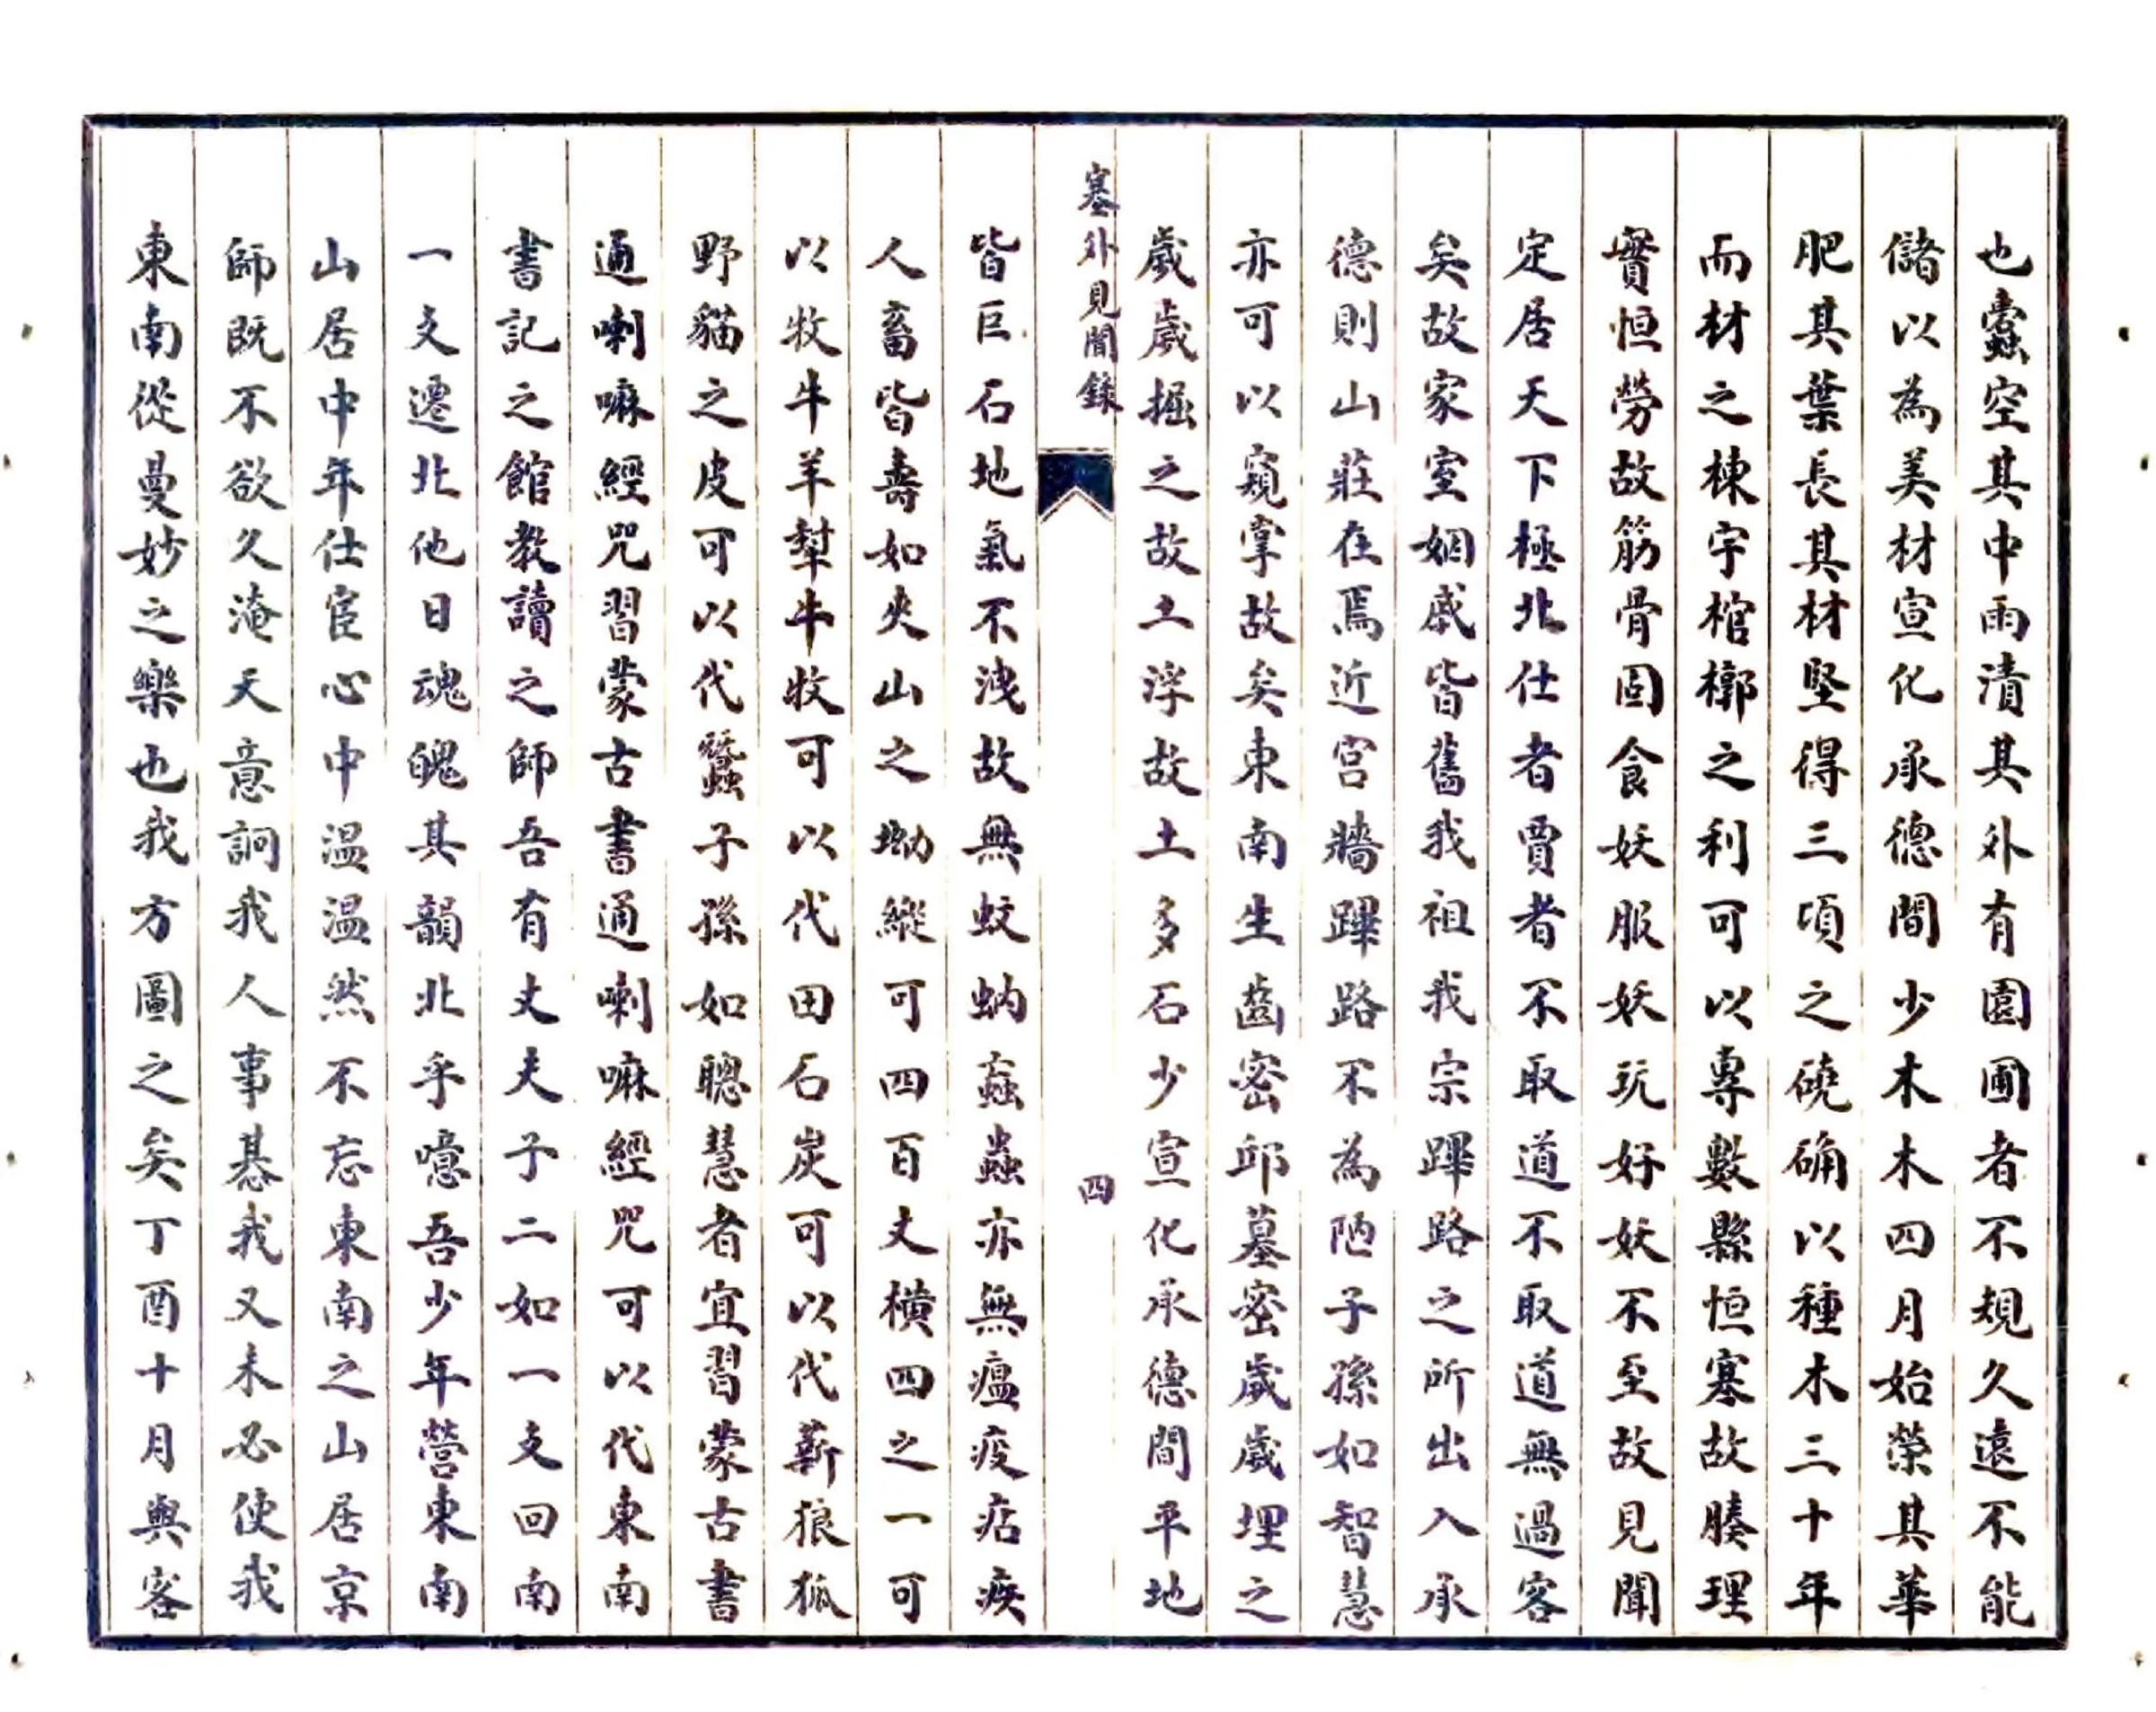 也蠹空其中雨漬其外有園圃者不規久遠不能
儲以為美材宣化承德間少木木四月始榮其華
肥其葉長其材堅得三頃之磽确以種木三十年
而材之棟宇棺槨之利可以專數縣恒寒故腠理
實恒勞故筋骨固食妖服妖玩好妖不至故見聞
定居天下極北仕者賈者不取道不取道無過客
矣故家室姻戚皆舊我祖我宗蹕路之所出入承
德則山莊在焉近宮牆蹕路不為陋子孫如智慧
亦可以窺掌故矣東南生齒密邱墓密歲歲埋之
歲歲掘之故土浮故土多石少宣化承德間平地
塞外見聞錄
四
皆巨石地氣不洩故無蚊蚋蝱蟲亦無瘟疫痁疾
人畜皆壽如夾山之坳縱可四百丈橫四之一可
以牧牛羊犎牛牧可以代田石炭可以代薪狼狐
野貓之皮可以代蠶子孫如聰慧者宜習蒙古書
通喇嘛經咒習蒙古書通喇嘛經咒可以代東南
書記之館教讀之師吾有丈夫子二如一支回南
一支遷北他日魂魄其韻北乎噫吾少年營東南
山居中年仕宦心中温温然不忘東南之山居京
師既不欲久淹天意詗我人事惎我又未必使我
東南從曼妙之樂也我方圖之矣丁酉十月與客